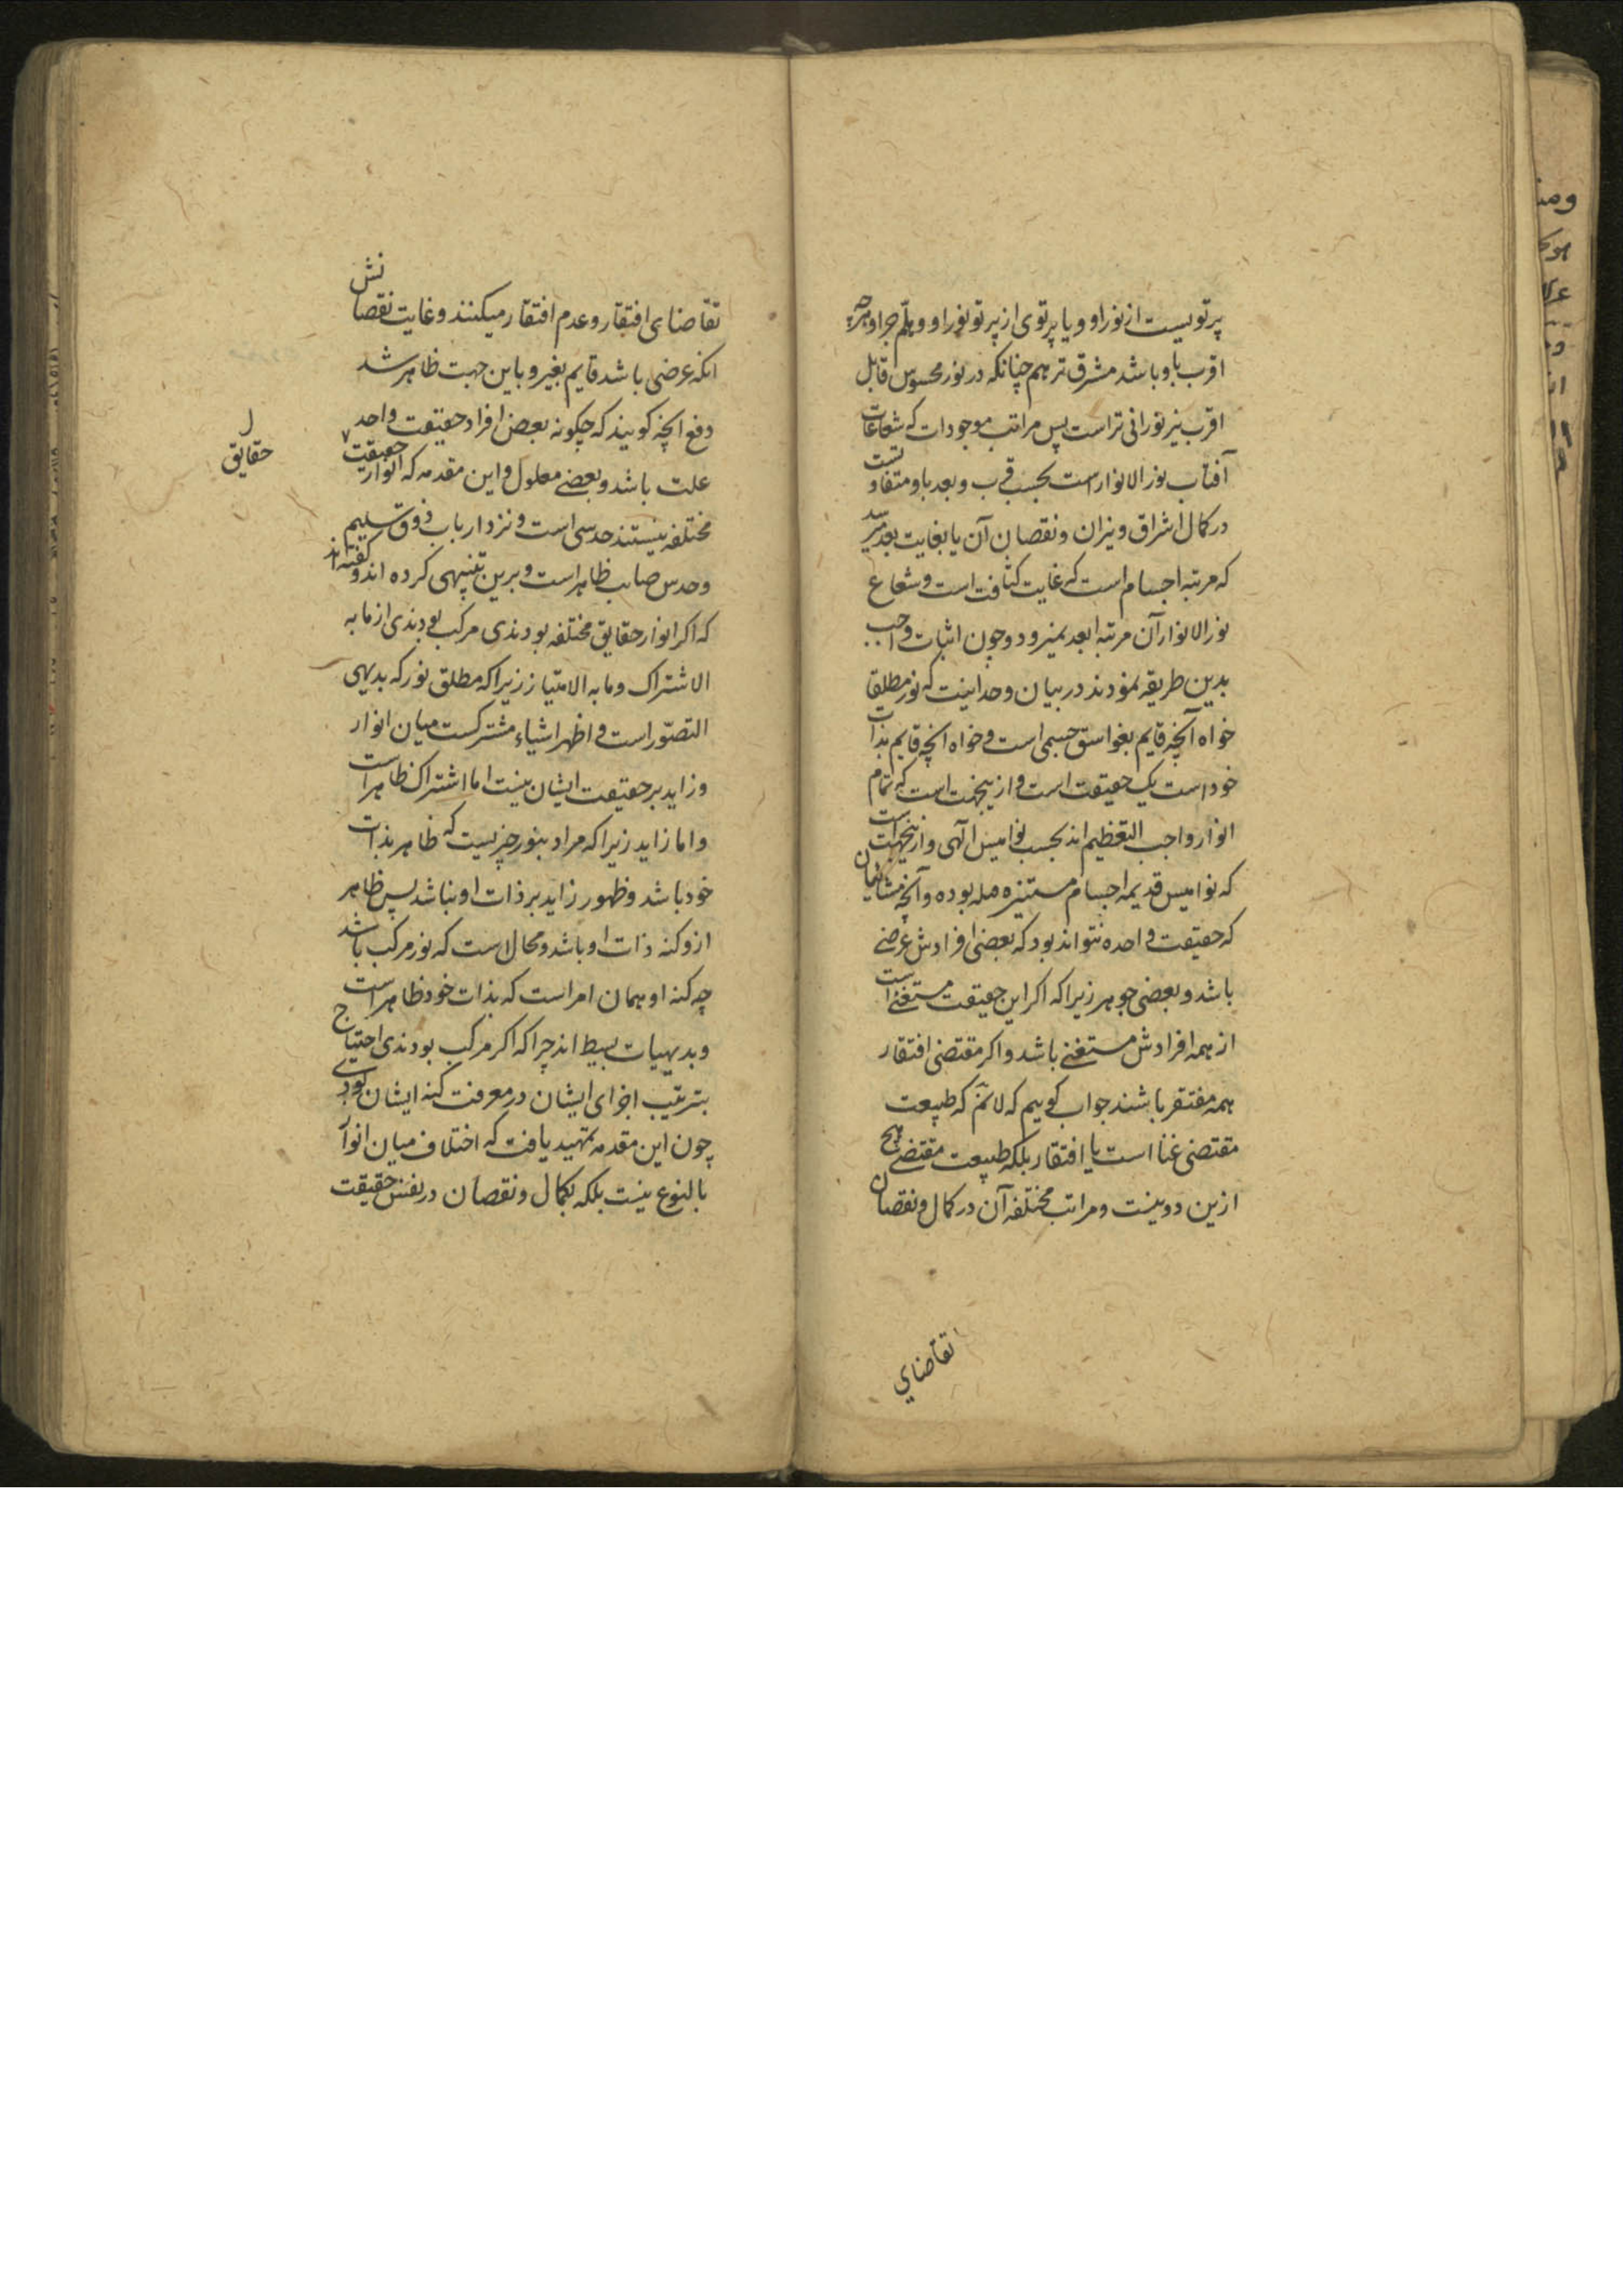 پرتویست از نور او و یا پرتوی از پرتو نور او و هلم جرا و هرچه
اقرب باو باشد مشرق تر هم چنانکه در نور محسوس قابل
اقرب نیر نورانی تر است پس مراتب موجودات که شعاعات
آفتاب نور الانوار است بحسب قرب و بعد باو متفاوتست
در کمال اشراق و نیران و نقصان آن یا بغایت بعد میرسد
که مرتبه اجسام است که غایت کثافت است و شعاع
نور الانوار آن مرتبه ابعد نمیرود و چون اثبات واجب
بدین طریقه نمودند در بیان وحدانیت که نور مطلقا
خواه آنچه قایم بغواسق جسمی است و خواه انچه قایم بذات
خود است یک حقیقت است و ازینجهت است که تمام
انوار واجب التعظیم اند بحسب نوامیس آلهی و ازینجهت است
که نوامیس قدیمه اجسام مستنیره مله بوده و آنچه مشائیان
که حقیقت واحده نتواند بود که بعضی افرادش عرضی
باشد و بعضی جوهر زیرا که اکر این حقیقت مستغنی است
از همه افرادش مستغنی باشد و اکر مقتضی افتقار
همه مفتقر باشند جواب کوییم که لانم که طبیعت
مقتضی غنا است یا افتقار بلکه طبیعت مقتضی هیچ
ازین دو نیست و مراتب مختلفه آن در کمال و نقصان
تقاضای
تقاضای افتقار و عدم افتقار میکنند و غایت نقصانش
انکه عرضی باشد قایم بغیر و باین جهت ظاهر شد
دفع انچه کویند که چکونه بعض افراد حقیقت واحد
علت باشد و بعضی معلول و این مقدمه که انوار حقیقت
حقایق
مختلفه نیستند حدسی است و نزد ارباب ذوق سلیم
و حدس صایب ظاهر است و برین تنبیهی کرده اند و کفته اند
که اکر انوار حقایق مختلفه بودندی مرکب بودندی از ما به
الاشتراک و ما به الامتیاز زیرا که مطلق نور که بدیهی
التصور است و اظهر اشیاء مشترکست میان انوار
و زاید بر حقیقت ایشان نیست اما اشتراک ظاهر است
و اما زاید زیرا که مراد بنور چیزیست که ظاهر بذات
خود باشد و ظهور زاید بر ذات او نباشد پس ظاهر
ازو کنه ذات او باشد و محال است که نور مرکب باشد
چه کنه او همان امر است که بذات خود ظاهر است
و بدیهیات بسیط اند چرا که اکر مرکب بودندی احتیاج
بترتیب اجزای ایشان در معرفت کنه ایشان بودی
چون این مقدمه تمهید یافت که اختلاف میان انوار
بالنوع نیست بلکه بکمال و نقصان در نفس حقیقت